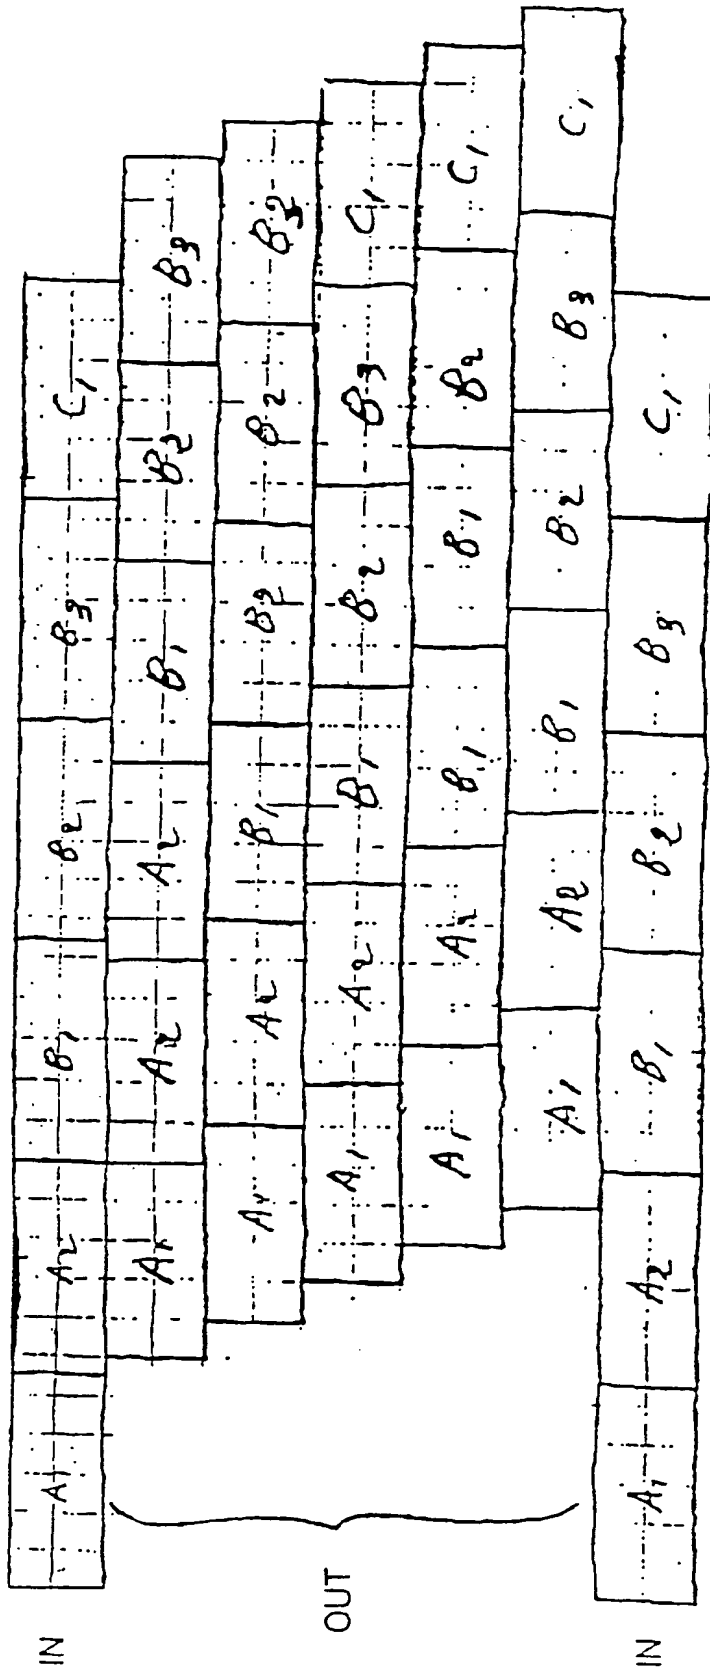 IN A1 A2 B1 B2 B3 C1
A1 A2 A2 B1 B2 B3
A1 A2 B1 B2 B2
OUT A1 A2 B1 B2 B3 C1
A1 A2 B1 B1 B2 C1
A1 A2 B1 B2 B3 C1
IN A1 A2 B1 B2 B3 C1